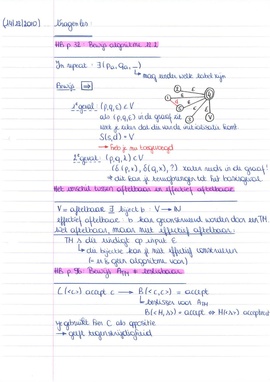 (14/12/2010) Vragenles:
HB p 32: Bewijs algoritme 2.2
In repeat: ∃(p, qa, _)
→ mag eender welk label zijn
Bewijs ⇒
1e geval: (p,q,ε) ∈ V
als (p,q,ε) in de graaf zit
weet je zeker dat die van de initialisatie komt
S(s,d) = V
→ heb je nu toegevoegd
2e geval: (p,q,ε) ∈ V
(δ(p,x), δ(q,x), ?) zaten reeds in de graaf!
→ dit kan je terugbrengen tot het basisgeval
Het verschil tussen aftelbaar en effectief aftelbaar
V = aftelbaar ∃ bijectie b: V → ℕ
effectief aftelbaar: b kan geconstrueerd worden door een TM.
Wel aftelbaar, maar niet effectief aftelbaar:
TM's die eindigt op input ε
→ die bijectie kan je niet effectief construeren
(= er is geen algoritme voor)
HB p 96: Bewijs A_TM is beslisbaar
C(<c>) accept c → B(<c,c>) = accept
→ beslisser voor A_TM
B(<M,s>) = accept ⇔ M(<s>) accepteert
je gebruikt hier C als oppositie
→ geeft tegenstrijdigheid